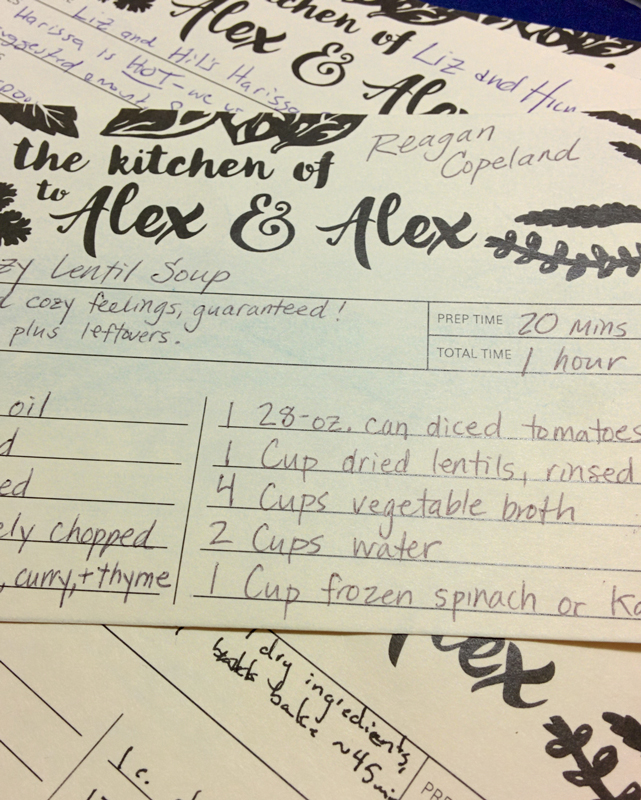 Liz and Hil's Harissa
Harissa is HOT - we
kitchen of Liz and
Alex &
the kitchen of Reagan
Copeland
to Alex & Alex
zy Lentil Soup
d cozy feelings, guaranteed!
plus leftovers.
PREP TIME 20 mins
TOTAL TIME 1 hour
oil
d
ed
ely chopped
, curry, + thyme
1 28-oz. can diced tomatoes
1 Cup dried lentils, rinsed
4 Cups vegetable broth
2 Cups water
1 Cup frozen spinach or Ka
lex
dry ingredients,
bake ~45 min
1 c.
PR